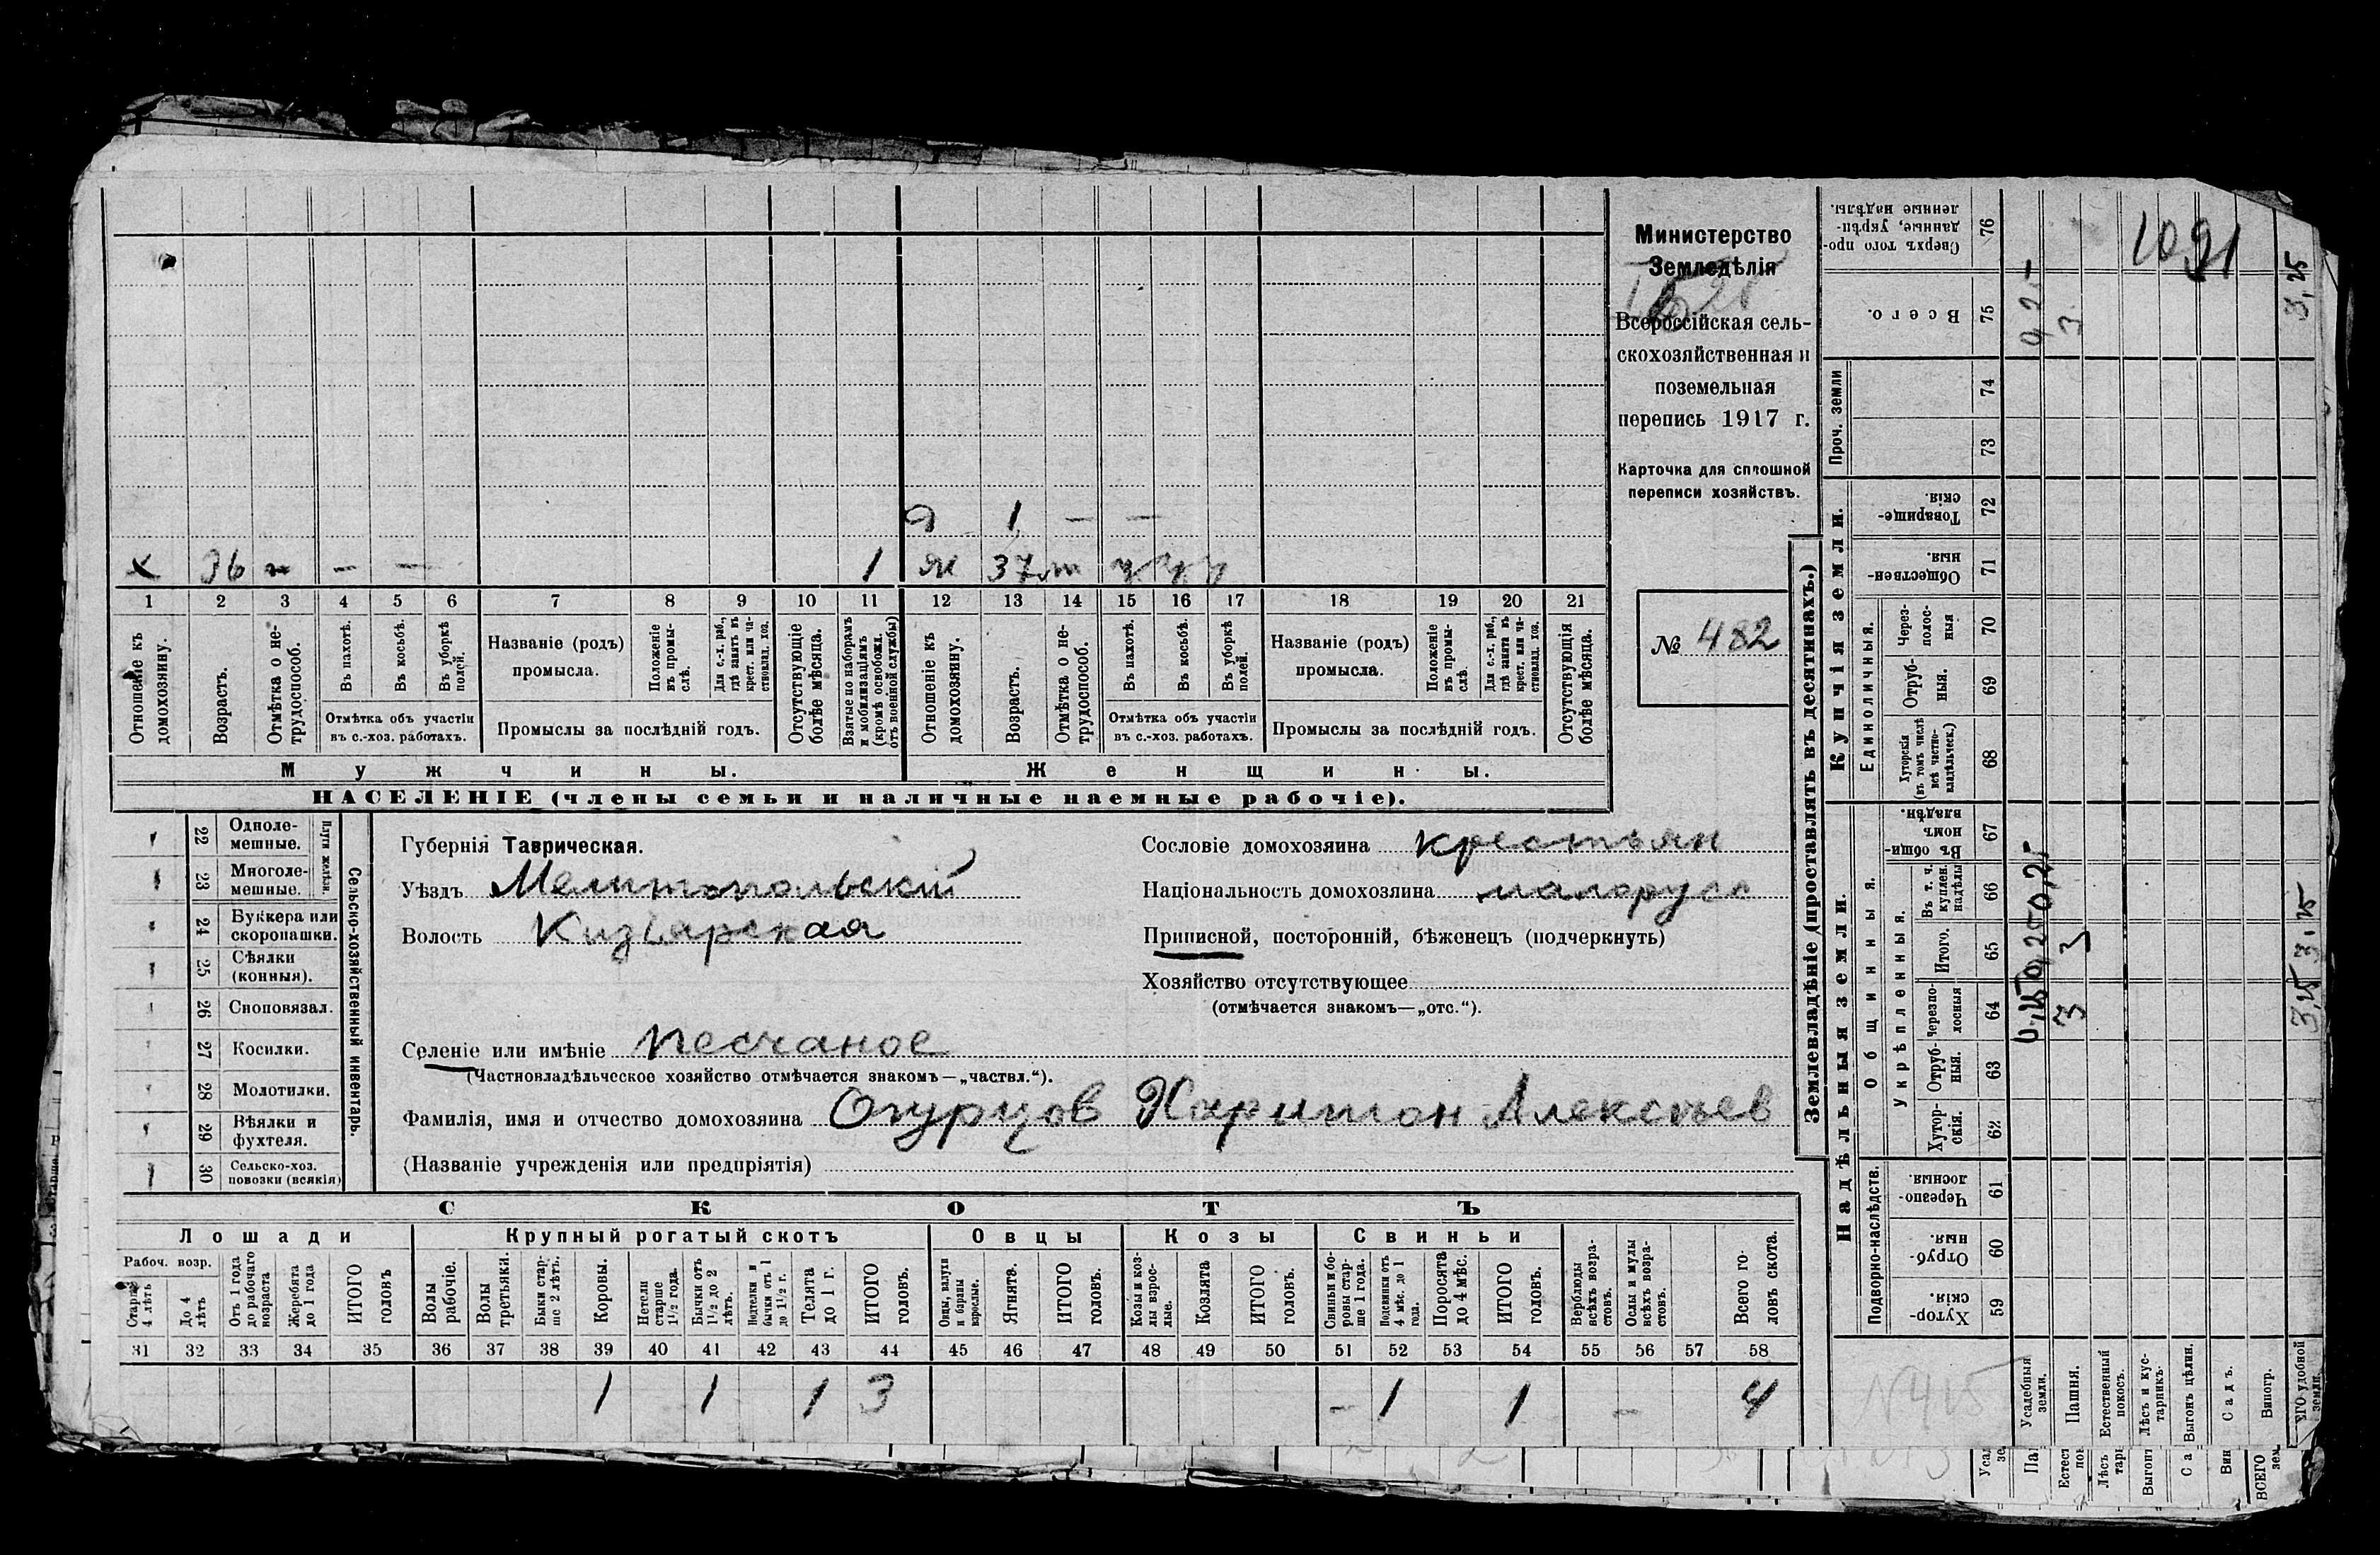 Министерство
Земледѣлія
Всероссійская сель-
скохозяйственная и
поземельная
перепись 1917 г.
Карточка для сплошной
переписи хозяйствъ.
№ 482
Я 1 — —
х 36 — —
1 ж 37
1 2 3 4 5 6 7 8 9 10 11 12 13 14 15 16 17 18 19 20 21
Отношеніе къ домохозяину.
Возрастъ.
Отмѣтка о нетрудоспособ.
Въ пахотѣ.
Въ косьбѣ.
Въ уборкѣ полей.
Отмѣтка объ участіи
въ с.-хоз. работахъ.
Названіе (родъ)
промысла.
Положеніе въ промыслѣ.
Для с.-х. раб., гдѣ занятъ въ крест. или частновлад. хоз.
Промыслы за послѣдній годъ.
Отсутствующіе болѣе мѣсяца.
Взятые по наборамъ и мобилизаціямъ (кромѣ освобожд. отъ военной службы)
Отношеніе къ домохозяину.
Возрастъ.
Отмѣтка о нетрудоспособ.
Въ пахотѣ.
Въ косьбѣ.
Въ уборкѣ полей.
Отмѣтка объ участіи
въ с.-хоз. работахъ.
Названіе (родъ)
промысла.
Положеніе въ промыслѣ
Для с.-х. раб., гдѣ занятъ въ крест. или частновлад. хоз.
Промыслы за послѣдній годъ.
Отсутствующія болѣе мѣсяца.
Мужчины.
Женщины.
НАСЕЛЕНІЕ (члены семьи и наличные наемные рабочіе).
Сельско-хозяйственный инвентарь.
Плуги желѣзн.
22 Однолемешные.
23 Многолемешные.
24 Буккера или скоропашки.
25 Сѣялки (конныя).
26 Сноповязал.
27 Косилки.
28 Молотилки.
29 Вѣялки и фухтеля.
30 Сельско-хоз. повозки (всякія)
Губернія Таврическая.
Уѣздъ Мелитопольскій
Волость Кизіярская
Сословіе домохозяина крестьян
Національность домохозяина малорусс
Приписной, посторонній, бѣженецъ (подчеркнуть)
Хозяйство отсутствующее
(отмѣчается знакомъ—„отс.“).
Селеніе или имѣніе Песчаное
(Частновладѣльческое хозяйство отмѣчается знакомъ—„частвл.“).
Фамилія, имя и отчество домохозяина Огурцов Харитон Алексѣев
(Названіе учрежденія или предпріятія)
СКОТЪ
Лошади
Крупный рогатый скотъ
Овцы
Козы
Свиньи
Рабоч. возр.
Старше 4 лѣтъ
До 4 лѣтъ
Отъ 1 года до рабочаго возраста
Жеребята до 1 года
ИТОГО головъ
Волы рабочіе.
Волы третьяки.
Быки старше 2 лѣтъ.
Коровы.
Нетели старше 1½ года.
Бычки отъ 1½ до 2 лѣтъ.
Подтелки и бычки отъ 1 до 1½ г.
Телята до 1 г.
ИТОГО головъ.
Овцы, валухи и бараны взрослые.
Ягнята.
ИТОГО головъ.
Козы и козлы взрослые.
Козлята
ИТОГО головъ.
Свиньи и боровы старше 1 года.
Подсвинки отъ 4 мѣс. до 1 года.
Поросята до 4 мѣс.
ИТОГО головъ.
Верблюды всѣхъ возрастовъ.
Ослы и мулы всѣхъ возрастовъ.
Всего головъ скота.
31 32 33 34 35 36 37 38 39 40 41 42 43 44 45 46 47 48 49 50 51 52 53 54 55 56 57 58
1 1 1 3 – 1 1 – 4
Землевладѣніе (проставлять въ десятинахъ.)
Купчія земли.
Надѣльныя земли.
Сверхъ того проданные, укрѣпленные надѣлы. 76
Всего. 75
Проч. земли
74
73
Товарищескія. 72
Общественныя. 71
Единоличныя.
Черезполосныя 70
Отрубныя. 69
Хуторскія (въ томъ числѣ всѣ частновладѣльческ.) 68
Общинныя.
Въ общинномъ владѣн. 67
Укрѣпленныя.
Въ т. ч. куплен. надѣлы 66
Итого. 65
Черезполосныя 64
Отрубныя. 63
Хуторскія. 62
Подворно-наслѣдств.
Черезполосныя. 61
Отрубныя. 60
Хуторскія. 59
Усадебныя земли.
Пашня.
Естественный покосъ.
Лѣсъ и кустарникъ.
Выгонъ цѣлин.
Садъ.
Виногр.
удобной земли.
0,25 0,25 0,25
3 3 3
3,25 3,25 3,25
1091
N415
Естест
Лѣсъ
Выгонъ
Вин
ВСЕГО